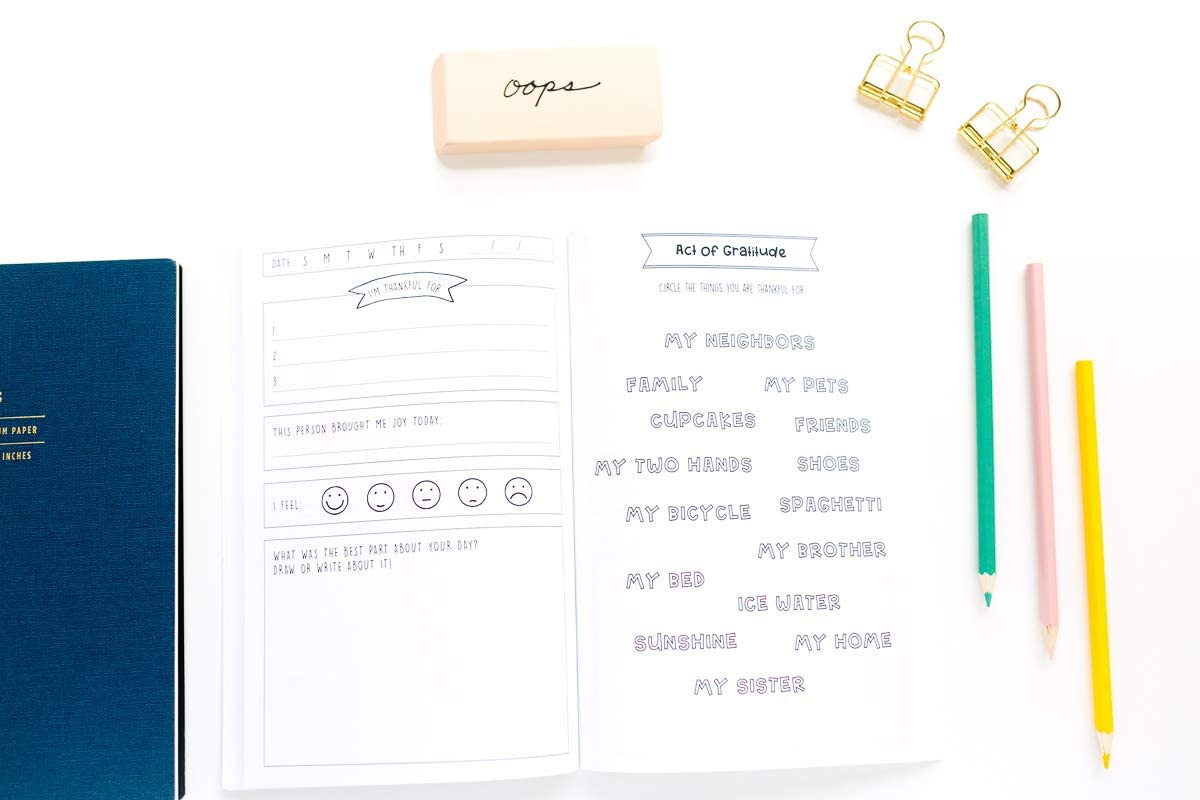 oops
S
UM PAPER
INCHES
DATE: S M T W TH F S / /
I'M THANKFUL FOR
1.
2.
3.
THIS PERSON BROUGHT ME JOY TODAY:
I FEEL:
WHAT WAS THE BEST PART ABOUT YOUR DAY?
DRAW OR WRITE ABOUT IT!
Act Of Gratitude
CIRCLE THE THINGS YOU ARE THANKFUL FOR
MY NEIGHBORS
FAMILY MY PETS
CUPCAKES FRIENDS
MY TWO HANDS SHOES
MY BICYCLE SPAGHETTI
MY BROTHER
MY BED
ICE WATER
SUNSHINE MY HOME
MY SISTER